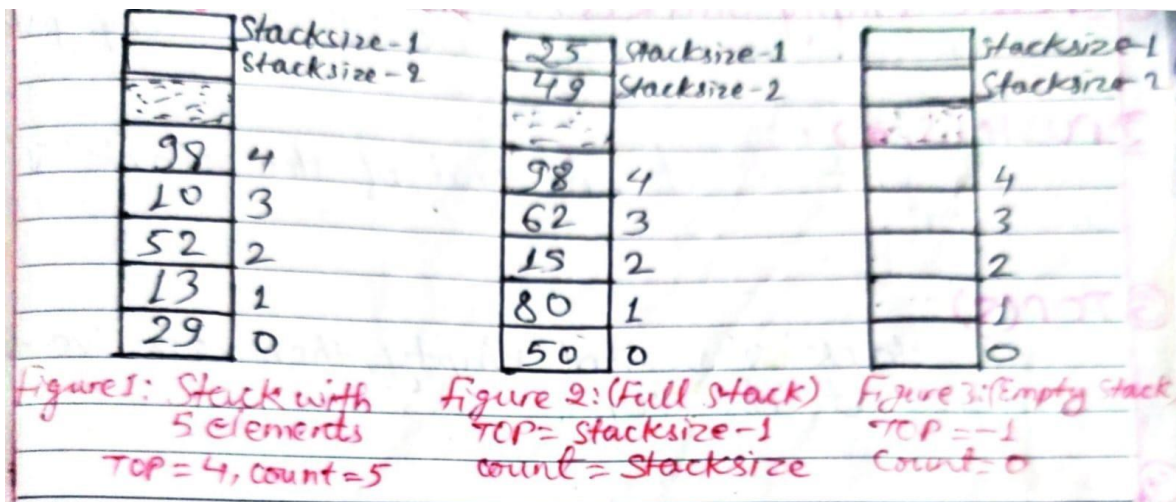 Stacksize-1
Stacksize-2
98 4
10 3
52 2
13 1
29 0
Figure 1: Stack with
5 elements
TOP = 4, count = 5
25 Stacksize-1
49 Stacksize-2
98 4
62 3
15 2
80 1
50 0
Figure 2: (Full Stack)
TOP = Stacksize-1
count = Stacksize
Stacksize-1
Stacksize-2
4
3
2
1
0
Figure 3: (Empty Stack
TOP = -1
Count = 0